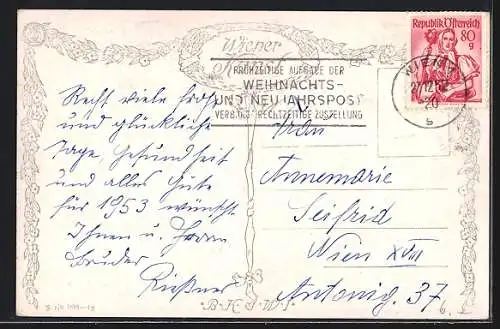 Wiener
Kunst
FRÜHZEITIGE AUFGABE DER
WEIHNACHTS-
UND NEUJAHRSPOST
VERBÜRGT RECHTZEITIGE ZUSTELLUNG
Republik Österreich
80
g
WIEN
27.12.52
20
b
Recht viele frohe
und glückliche
Tage, Gesundheit
und alles Gute
für 1953 wünscht
Ihnen u. Herrn
Bruder
Frau
Annemarie
Seifrid
Wien XVII
Antonig. 37
B.K.W.I.